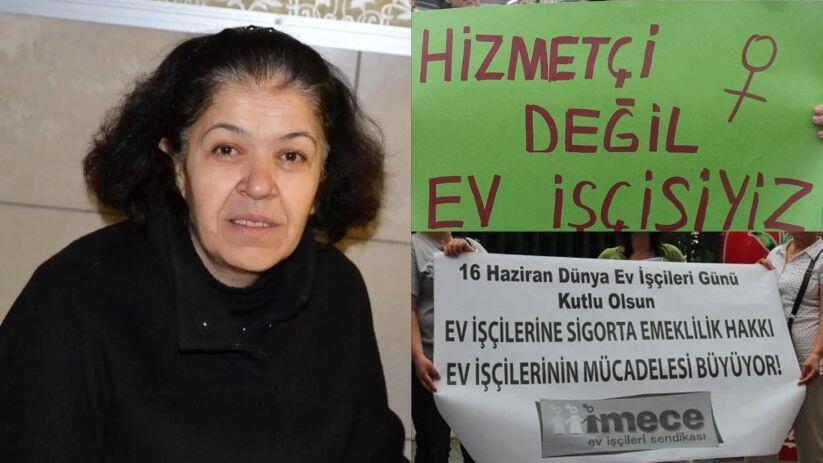 HİZMETÇİ
DEĞİL
EV İŞÇİSİYİZ
16 Haziran Dünya Ev İşçileri Günü
Kutlu Olsun
EV İŞÇİLERİNE SİGORTA EMEKLİLİK HAKKI
EV İŞÇİLERİNİN MÜCADELESİ BÜYÜYOR!
imece
ev işçileri sendikası